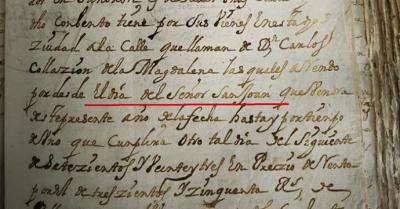 dho Conbento tiene por Sus vienes En esta
Ziudad a la Calle que llaman de Dn Carlos
Collaszion de la Magdalena las queles arriendo
por desde El dia del Señor San Joan que Bendra
deste presente año de la fecha hasta y por tiempo
de Uno que Cumplira Otro tal dia del Siguiente
de Setezientos Y Veinte y tres En Prezio de
trezientos Y Zinquenta Rs de